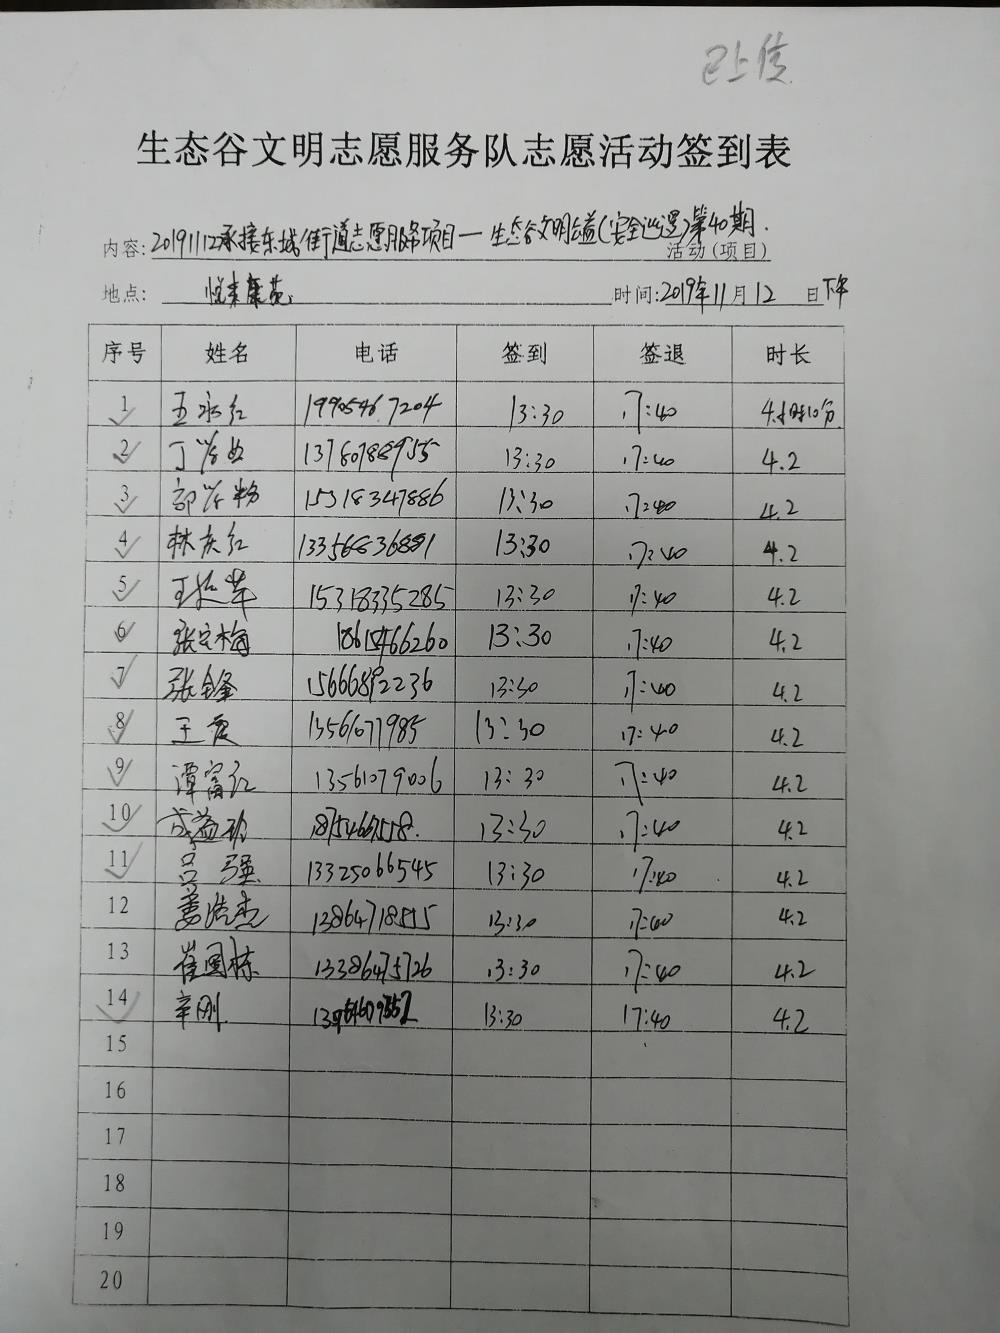 已上传
生态谷文明志愿服务队志愿活动签到表
内容: 20191112承接东城街道志愿服务项目—生态谷文明公益(安全巡逻)第40期. 活动(项目)
地点: 悦来康苑 时间:2019年11月12日下午
序号 姓名 电话 签到 签退 时长
1 王永红 19905467204 13:30 17:40 4小时10分
2 丁 13780788955 13:30 17:40 4.2
3 15318347886 13:30 17:40 4.2
4 林庆红 13356836891 13:30 17:40 4.2
5 王 15318335285 13:30 17:40 4.2
6 张 梅 13:30 17:40 4.2
7 张金锋 15666892236 13:30 17:40 4.2
8 王霞 13561077985 13:30 17:40 4.2
9 谭富红 13561079006 13:30 17:40 4.2
10 成 13:30 17:40 4.2
11 吕强 13325066545 13:30 17:40 4.2
12 姜浩杰 13:30 17:40 4.2
13 崔国栋 13386475726 13:30 17:40 4.2
14 辛刚 13:30 17:40 4.2
15
16
17
18
19
20